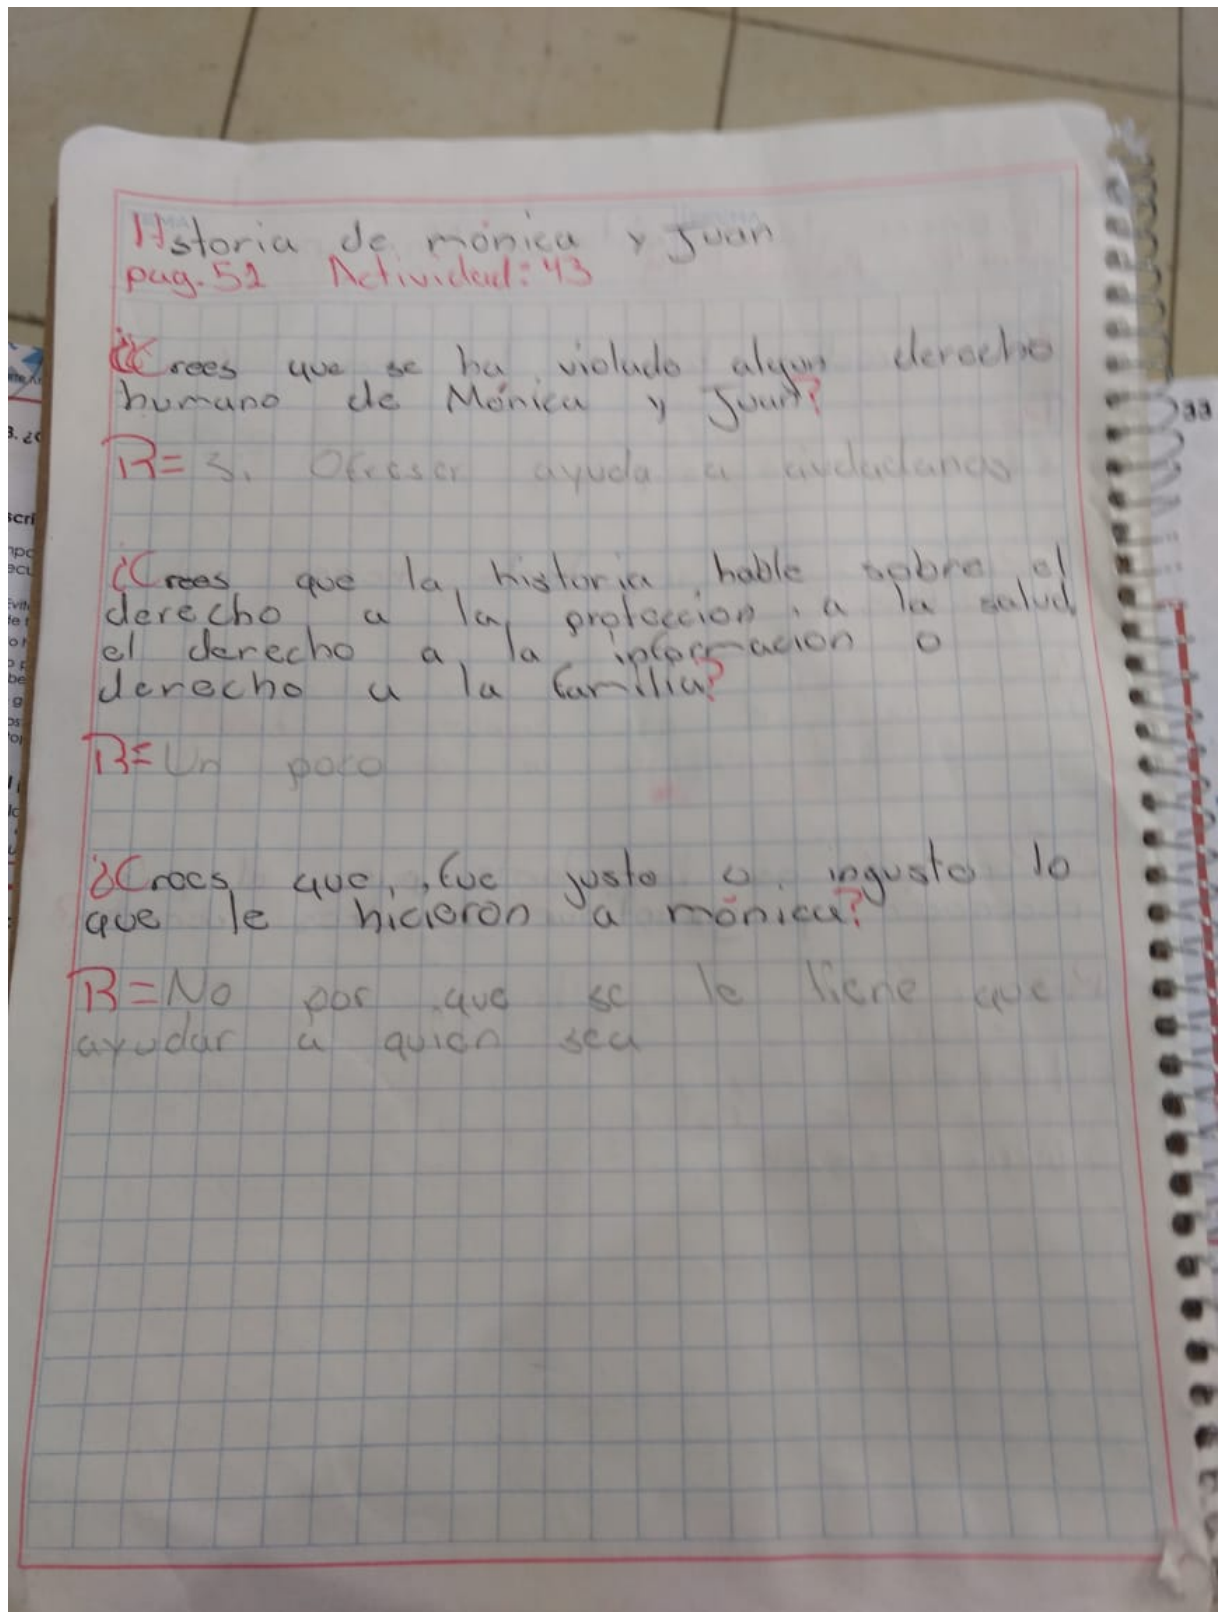 Hstoria de mónica y Juan
pag. 52 Actividad: 43
¿Crees que se ha violado algun derecho
humano de Mónica y Juan?
R= 3. Ofreser ayuda a ciudadanos
¿Crees que la historia hable sobre el
derecho a la proteccion a la salud
el derecho a la informacion o
derecho a la familia?
R= Un poco
¿Crees que fue justo o ingusto lo
que le hicieron a mónica?
R= No por que se le tiene que
ayudar a quien sea
33